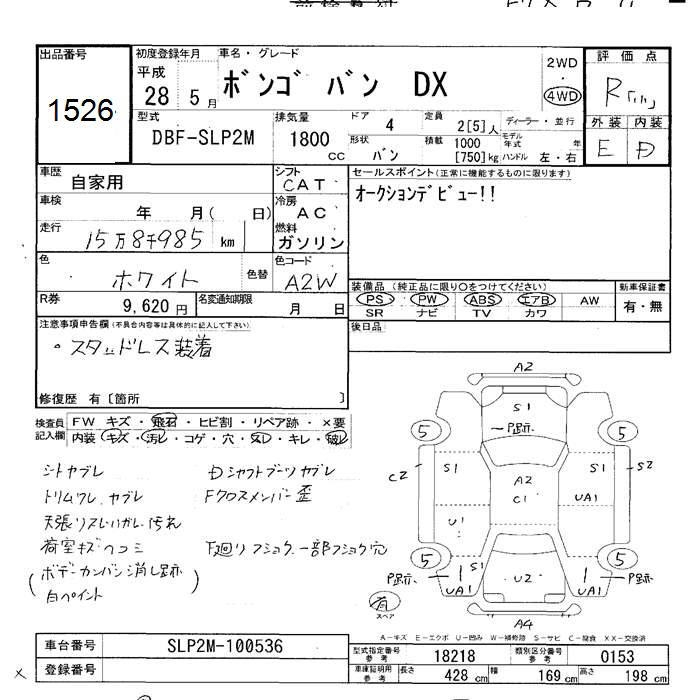 出品番号
1526
初度登録年月
平成
28 5 月
車名・グレード
ボンゴ バン DX
2WD
・
4WD
評価点
R
外装 内装
E D
型式
DBF-SLP2M
排気量
1800
cc
ドア
4
形状
バン
定員
2[5]人
積載
1000
[750]kg
ディーラー・並行
モデル年式 年
ハンドル 左・右
車歴
自家用
シフト
CAT
車検
年 月( 日)
冷房
AC
走行
15万8千985 km
燃料
ガソリン
色
ホワイト
色替
色コード
A2W
R券
9,620円
名変通知期限
月 日
セールスポイント(正常に機能するものに限ります)
オークションデビュー!!
装備品(純正品に限り〇をつけてください)
PS PW ABS エアB AW
SR ナビ TV カワ
新車保証書
有・無
後日品
注意事項申告欄(不具合内容等は具体的に記入して下さい)
・スタッドレス装着
修復歴 有〔箇所 〕
検査員
記入欄
FW キズ・飛石・ヒビ割・リペア跡・×要
内装(キズ・汚レ・コゲ・穴・欠レ・キレ・破レ
シートヤブレ
Dシャフトブーツヤブレ
トリムワレ、ヤブレ
Fクロスメンバー歪
天張リスレハガレ汚れ
荷室キズヘコミ
下廻りフショク、一部フショク穴
(ボデーカンバン消し跡)
白ペイント
A2
S1
P跡
5 5
C2 S1 A2 S1 S2
C1 UA1
U1
5 5
P跡 S1 U2 P跡
UA1 UA1
有
スペア
A4
A-キズ E-エクボ U-凹み W-補修跡 S-サビ C-腐食 XX-交換済
車台番号
SLP2M-100536
登録番号
型式指定番号
参考
18218
類別区分番号
参考
0153
車庫証明用
参考
長さ 428 cm 幅 169 cm 高さ 198 cm
×